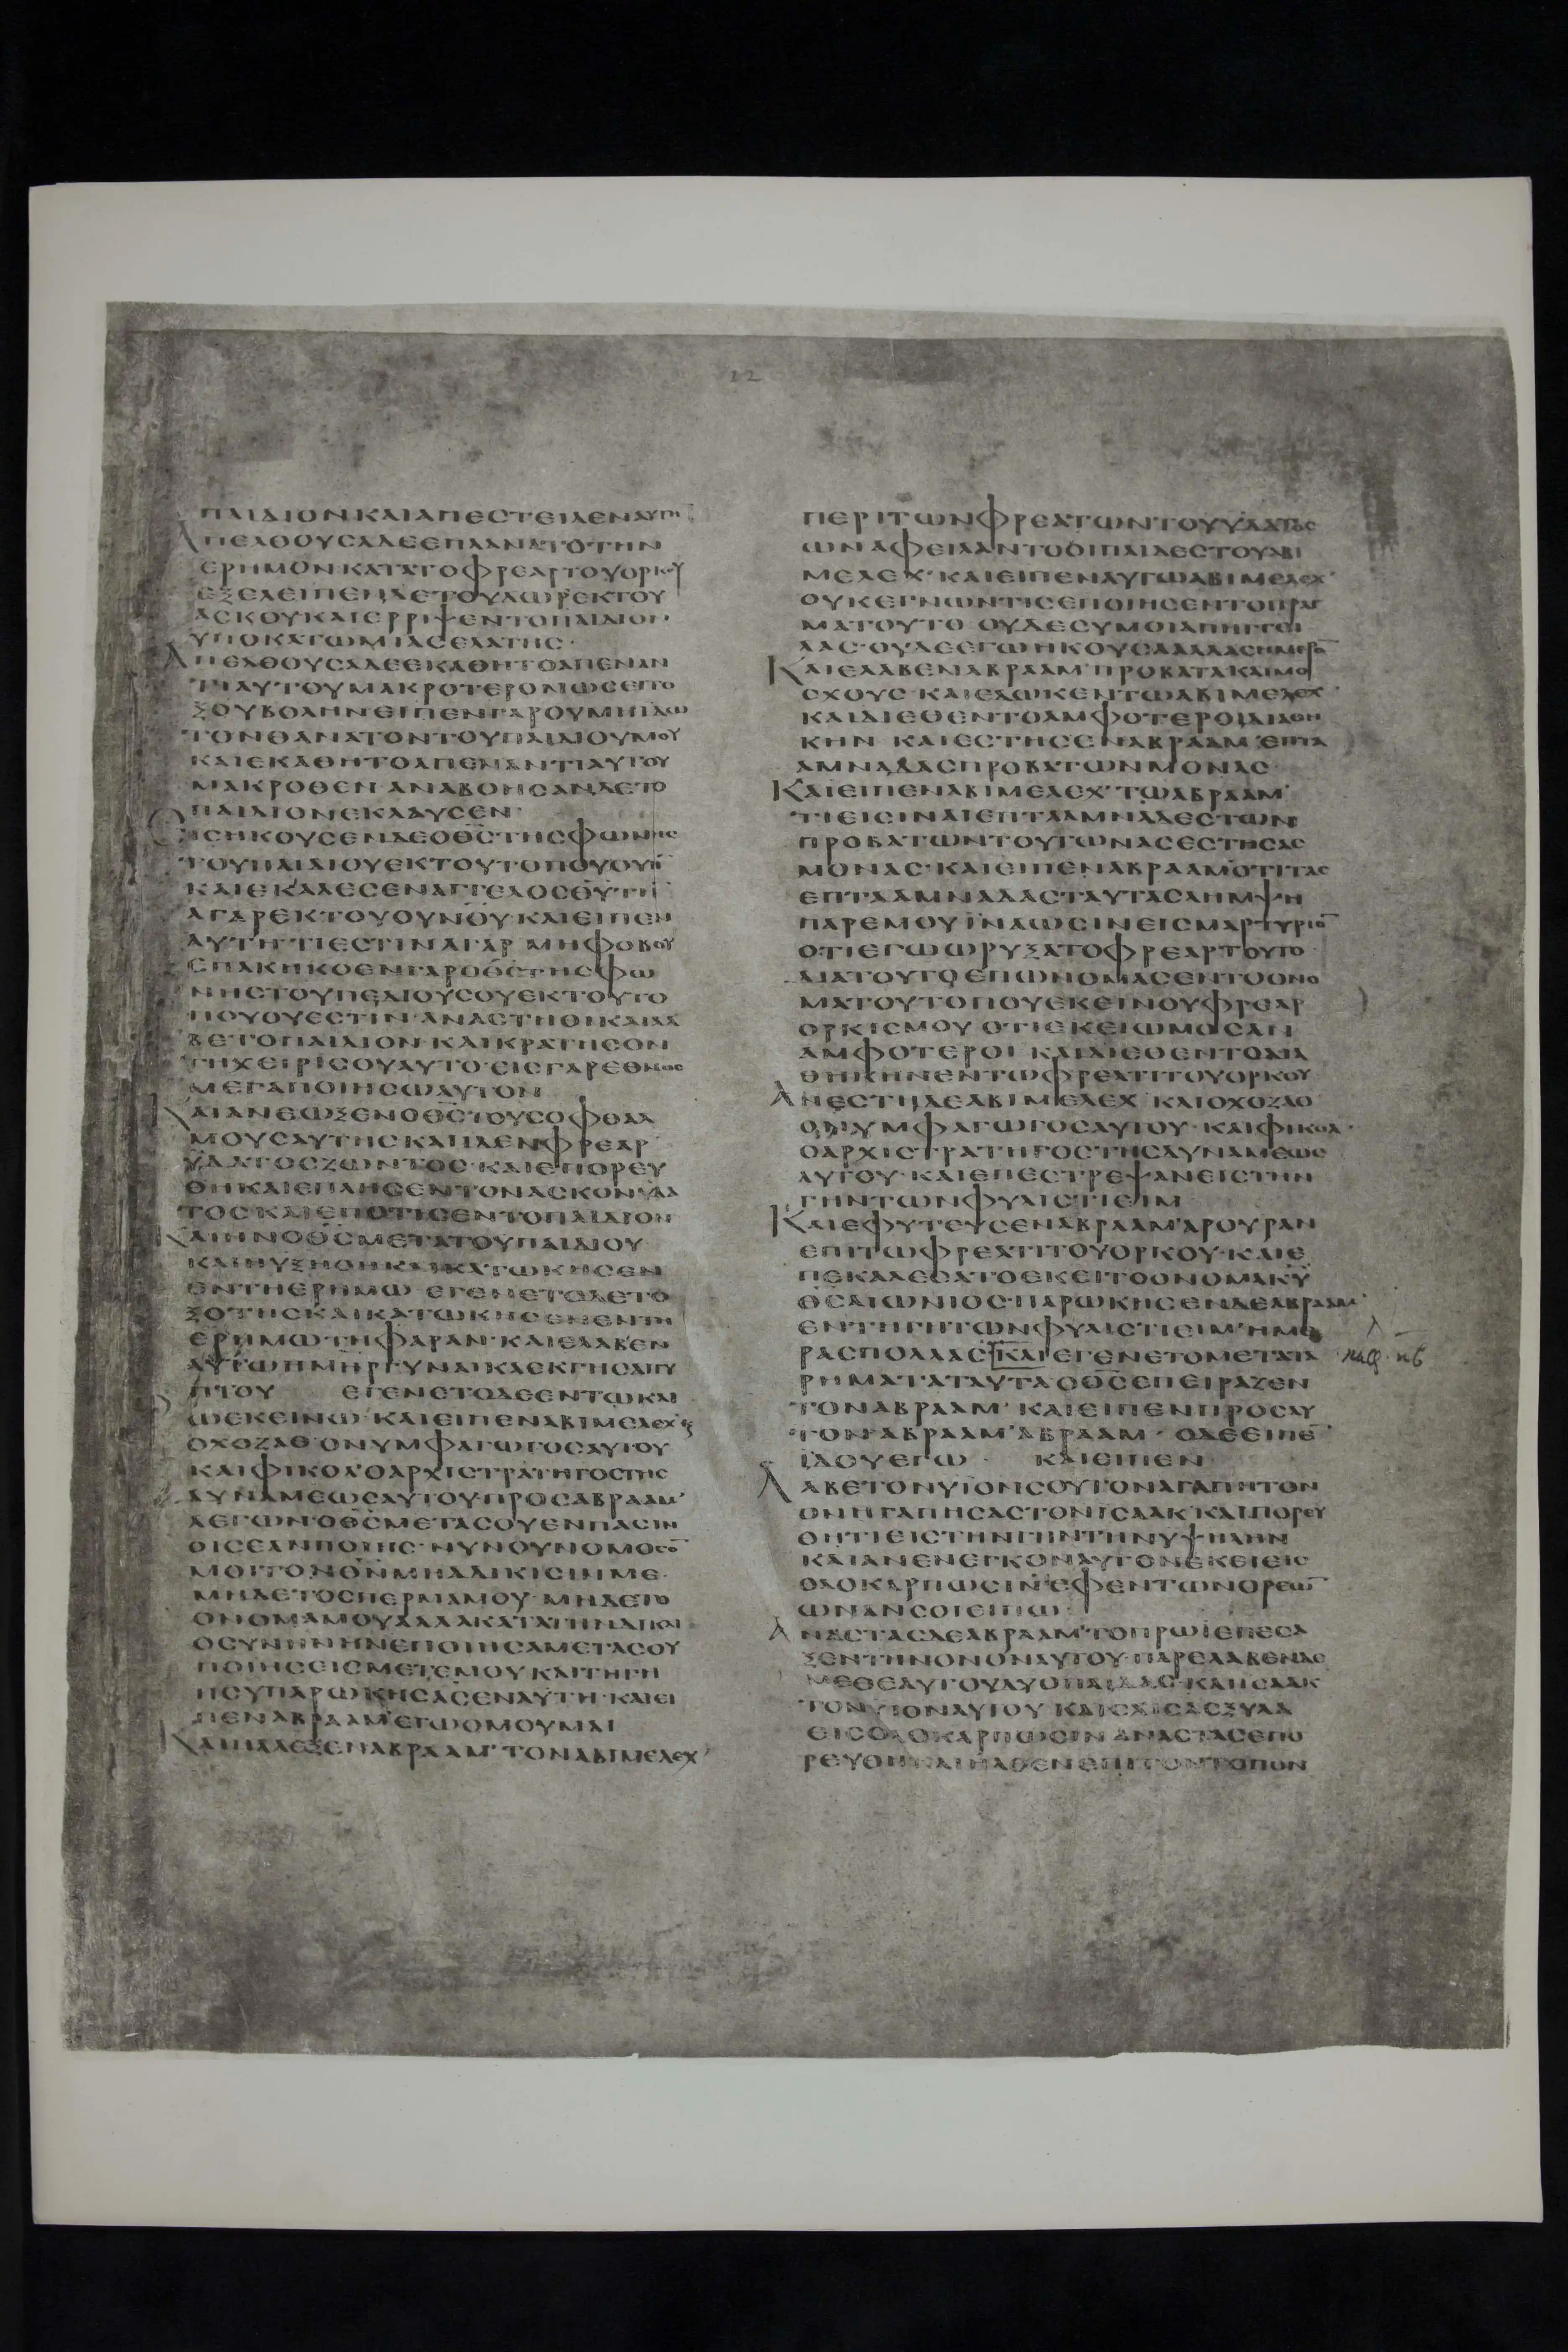 22
ΠΑΙΔΙΟΝΚΑΙΑΠΕСΤΕΙΛΕΝΑΥΤΗ
ΑΠΕΛΘΟΥСΑΔΕΕΠΛΑΝΑΤΟΤΗΝ
ΕΡΗΜΟΝΚΑΤΑΤΟΦΡΕΑΡΤΟΥΟΡΚΟΥ
ΕΞΕΛΕΙΠΕΝΔΕΤΟΥΔΩΡΕΚΤΟΥ
ΑСΚΟΥΚΑΙΕΡΡΙΨΕΝΤΟΠΑΙΔΙΟΝ
ΥΠΟΚΑΤΩΜΙΑСΕΛΑΤΗС·
ΑΠΕΛΘΟΥСΑΔΕΕΚΑΘΗΤΟΑΠΕΝΑΝ
ΤΙΑΥΤΟΥΜΑΚΡΟΤΕΡΟΝΩСΕΙΤΟ
ΞΟΥΒΟΛΗΝΕΙΠΕΝΓΑΡΟΥΜΗΙΔΩ
ΤΟΝΘΑΝΑΤΟΝΤΟΥΠΑΙΔΙΟΥΜΟΥ
ΚΑΙΕΚΑΘΗΤΟΑΠΕΝΑΝΤΙΑΥΤΟΥ
ΜΑΚΡΟΘΕΝ·ΑΝΑΒΟΗСΑΝΔΕΤΟ
ΠΑΙΔΙΟΝΕΚΛΑΥСΕΝ·
ΕΙСΗΚΟΥСΕΝΔΕΟΘ̅С̅ΤΗСΦΩΝΗС
ΤΟΥΠΑΙΔΙΟΥΕΚΤΟΥΤΟΠΟΥΟΥΗ̅
ΚΑΙΕΚΑΛΕСΕΝΑΓΓΕΛΟСΘ̅Υ̅ΤΗ
ΑΓΑΡΕΚΤΟΥΟΥΝΟΥ·ΚΑΙΕΙΠΕΝ
ΑΥΤΗ·ΤΙΕСΤΙΝΑΓΑΡ·ΜΗΦΟΒΟΥ
ΕΠΑΚΗΚΟΕΝΓΑΡΟΘ̅С̅ΤΗСΦΩ
ΝΗСΤΟΥΠΕΔΙΟΥСΟΥΕΚΤΟΥΤΟ
ΠΟΥΟΥΕСΤΙΝ·ΑΝΑСΤΗΘΙΚΑΙΛΑ
ΒΕΤΟΠΑΙΔΙΟΝ·ΚΑΙΚΡΑΤΗСΟΝ
ΤΗΧΕΙΡΙСΟΥΑΥΤΟ·ΕΙСΓΑΡΕΘΝΟС
ΜΕΓΑΠΟΙΗСΩΑΥΤΟΝ
ΚΑΙΑΝΕΩΞΕΝΟΘ̅С̅ΤΟΥСΟΦΘΑΛ
ΜΟΥСΑΥΤΗСΚΑΙΙΔΕΝΦΡΕΑΡ
ΥΔΑΤΟСΖΩΝΤΟС·ΚΑΙΕΠΟΡΕΥ
ΘΗΚΑΙΕΠΛΗСΕΝΤΟΝΑСΚΟΝΥΔΑ
ΤΟСΚΑΙΕΠΟΤΙСΕΝΤΟΠΑΙΔΙΟΝ
ΚΑΙΗΝΟΘ̅С̅ΜΕΤΑΤΟΥΠΑΙΔΙΟΥ
ΚΑΙΗΥΞΗΘΗΚΑΙΚΑΤΩΚΗСΕΝ
ΕΝΤΗΕΡΗΜΩ·ΕΓΕΝΕΤΟΔΕΤΟ
ΞΟΤΗСΚΑΙΚΑΤΩΚΗСΕΝΕΝΤΗ
ΕΡΗΜΩΤΗΦΑΡΑΝ·ΚΑΙΕΛΑΒΕΝ
ΑΥΤΩΗΜΗΡΓΥΝΑΙΚΑΕΚΓΗСΑΙΓΥ
ΠΤΟΥ ΕΓΕΝΕΤΟΔΕΕΝΤΩΚΑΙ
ΩΕΚΕΙΝΩ·ΚΑΙΕΙΠΕΝΑΒΙΜΕΛΕΧ
ΟΧΟΖΑΘ·ΟΝΥΜΦΑΓΩΓΟСΑΥΤΟΥ
ΚΑΙΦΙΚΟΛ·ΟΑΡΧΙСΤΡΑΤΗΓΟСΤΗС
ΔΥΝΑΜΕΩСΑΥΤΟΥ·ΠΡΟСΑΒΡΑΑΜ
ΛΕΓΩΝ·ΟΘ̅С̅ΜΕΤΑСΟΥΕΝΠΑСΙΝ
ΟΙСΕΑΝΠΟΙΗС·ΝΥΝΟΥΝΟΜΟСΟ̅
ΜΟΙΤΟΝΘ̅Ν̅ΜΗΑΔΙΚΙСΙΝΜΕ·
ΜΗΔΕΤΟСΠΕΡΜΑΜΟΥ·ΜΗΔΕΤΟ
ΟΝΟΜΑΜΟΥΑΛΛΑΚΑΤΑΤΗΝΔΙΚΑΙ
ΟСΥΝΗΝΗΝΕΠΟΙΗСΑΜΕΤΑСΟΥ
ΠΟΙΗСΕΙСΜΕΤΕΜΟΥΚΑΙΤΗΓΗ
ΗСΥΠΑΡΩΚΗСΑСΕΝΑΥΤΗ·ΚΑΙΕΙ
ΠΕΝΑΒΡΑΑΜ·ΕΓΩΟΜΟΥΜΑΙ
ΚΑΙΗΛΕΞΕΝΑΒΡΑΑΜ·ΤΟΝΑΒΙΜΕΛΕΧ
ΠΕΡΙΤΩΝΦΡΕΑΤΩΝΤΟΥΥΔΑΤΟС
ΩΝΑΦΕΙΛΑΝΤΟΟΙΠΑΙΔΕСΤΟΥΑΒΙ
ΜΕΛΕΧ·ΚΑΙΕΙΠΕΝΑΥΤΩΑΒΙΜΕΛΕΧ
ΟΥΚΕΓΝΩΝΤΙСΕΠΟΙΗСΕΝΤΟΠΡΑΓ
ΜΑΤΟΥΤΟ·ΟΥΔΕСΥΜΟΙΑΠΗΓΓΕΙ
ΛΑС·ΟΥΔΕΕΓΩΗΚΟΥСΑΑΛΛΑСΗΜΕΡΟ̅
ΚΑΙΕΛΑΒΕΝΑΒΡΑΑΜ·ΠΡΟΒΑΤΑΚΑΙΜΟ
СΧΟΥС·ΚΑΙΕΔΩΚΕΝΤΩΑΒΙΜΕΛΕΧ·
ΚΑΙΔΙΕΘΕΝΤΟΑΜΦΟΤΕΡΟΙΔΙΑΘΗ
ΚΗΝ ΚΑΙΕСΤΗСΕΝΑΒΡΑΑΜ·ΕΠΤΑ
ΑΜΝΑΔΑСΠΡΟΒΑΤΩΝΜΟΝΑС·
ΚΑΙΕΙΠΕΝΑΒΙΜΕΛΕΧ·ΤΩΑΒΡΑΑΜ·
ΤΙΕΙСΙΝΑΙΕΠΤΑΑΜΝΑΔΕСΤΩΝ
ΠΡΟΒΑΤΩΝΤΟΥΤΩΝΑСΕСΤΗСΑС
ΜΟΝΑС·ΚΑΙΕΙΠΕΝΑΒΡΑΑΜΟΤΙΤΑС
ΕΠΤΑΑΜΝΑΔΑСΤΑΥΤΑСΛΗΜΨΗ
ΠΑΡΕΜΟΥΙΝΑΩСΙΝΕΙСΜΑΡΤΥΡΙΟ̅
ΟΤΙΕΓΩΩΡΥΞΑΤΟΦΡΕΑΡΤΟΥΤΟ
ΔΙΑΤΟΥΤΟΕΠΩΝΟΜΑСΕΝΤΟΟΝΟ
ΜΑΤΟΥΤΟΠΟΥΕΚΕΙΝΟΥΦΡΕΑΡ
ΟΡΚΙСΜΟΥ·ΟΤΙΕΚΕΙΩΜΟСΑΝ
ΑΜΦΟΤΕΡΟΙ ΚΑΙΔΙΕΘΕΝΤΟΔΙΑ
ΘΗΚΗΝΕΝΤΩΦΡΕΑΤΙΤΟΥΟΡΚΟΥ
ΑΝΕСΤΗΔΕΑΒΙΜΕΛΕΧ·ΚΑΙΟΧΟΖΑΘ
ΟΝΥΜΦΑΓΩΓΟСΑΥΤΟΥ·ΚΑΙΦΙΚΟΛ·
ΟΑΡΧΙСΤΡΑΤΗΓΟСΤΗСΔΥΝΑΜΕΩС
ΑΥΤΟΥ·ΚΑΙΕΠΕСΤΡΕΨΑΝΕΙСΤΗΝ
ΓΗΝΤΩΝΦΥΛΙСΤΙΕΙΜ
ΚΑΙΕΦΥΤΕΥСΕΝΑΒΡΑΑΜΑΡΟΥΡΑΝ
ΕΠΙΤΩΦΡΕΑΤΙΤΟΥΟΡΚΟΥ·ΚΑΙΕ
ΠΕΚΑΛΕСΑΤΟΕΚΕΙΤΟΟΝΟΜΑΚ̅Υ̅
ΘС̅ΑΙΩΝΙΟС·ΠΑΡΩΚΗСΕΝΔΕΑΒΡΑΑΜ
ΕΝΤΗΓΗΤΩΝΦΥΛΙСΤΙΕΙΜ·ΗΜΕ
ΡΑСΠΟΛΛΑСΚΑΙΕΓΕΝΕΤΟΜΕΤΑΤΑ
ΡΗΜΑΤΑΤΑΥΤΑΟΘ̅С̅ΕΠΕΙΡΑΖΕΝ
ΤΟΝΑΒΡΑΑΜ·ΚΑΙΕΙΠΕΝΠΡΟСΑΥ
ΤΟΝ·ΑΒΡΑΑΜ·ΑΒΡΑΑΜ·ΟΔΕΕΙΠΕ̅
ΙΔΟΥΕΓΩ· ΚΑΙΕΙΠΕΝ
ΛΑΒΕΤΟΝΥΙΟΝСΟΥΤΟΝΑΓΑΠΗΤΟΝ
ΟΝΗΓΑΠΗСΑСΤΟΝΙСΑΑΚ·ΚΑΙΠΟΡΕΥ
ΘΗΤΙΕΙСΤΗΝΓΗΝΤΗΝΥΨΗΛΗΝ
ΚΑΙΑΝΕΝΕΓΚΟΝΑΥΤΟΝΕΚΕΙΕΙС
ΟΛΟΚΑΡΠΩСΙΝ·ΕΦΕΝΤΩΝΟΡΕΩ̅
ΩΝΑΝСΟΙΕΙΠΩ·
ΑΝΑСΤΑСΔΕΑΒΡΑΑΜ·ΤΟΠΡΩΙΕΠΕСΑ
ΞΕΝΤΗΝΟΝΟΝΑΥΤΟΥ·ΠΑΡΕΛΑΒΕΝΔΕ
ΜΕΘΕΑΥΤΟΥΔΥΟΠΑΙΔΑС·ΚΑΙΙСΑΑΚ
ΤΟΝΥΙΟΝΑΥΤΟΥ·ΚΑΙСΧΙСΑСΞΥΛΑ
ΕΙСΟΛΟΚΑΡΠΩСΙΝ·ΑΝΑСΤΑСΕΠΟ
ΡΕΥΘΗΚΑΙΗΛΘΕΝΕΠΙΤΟΝΤΟΠΟΝ